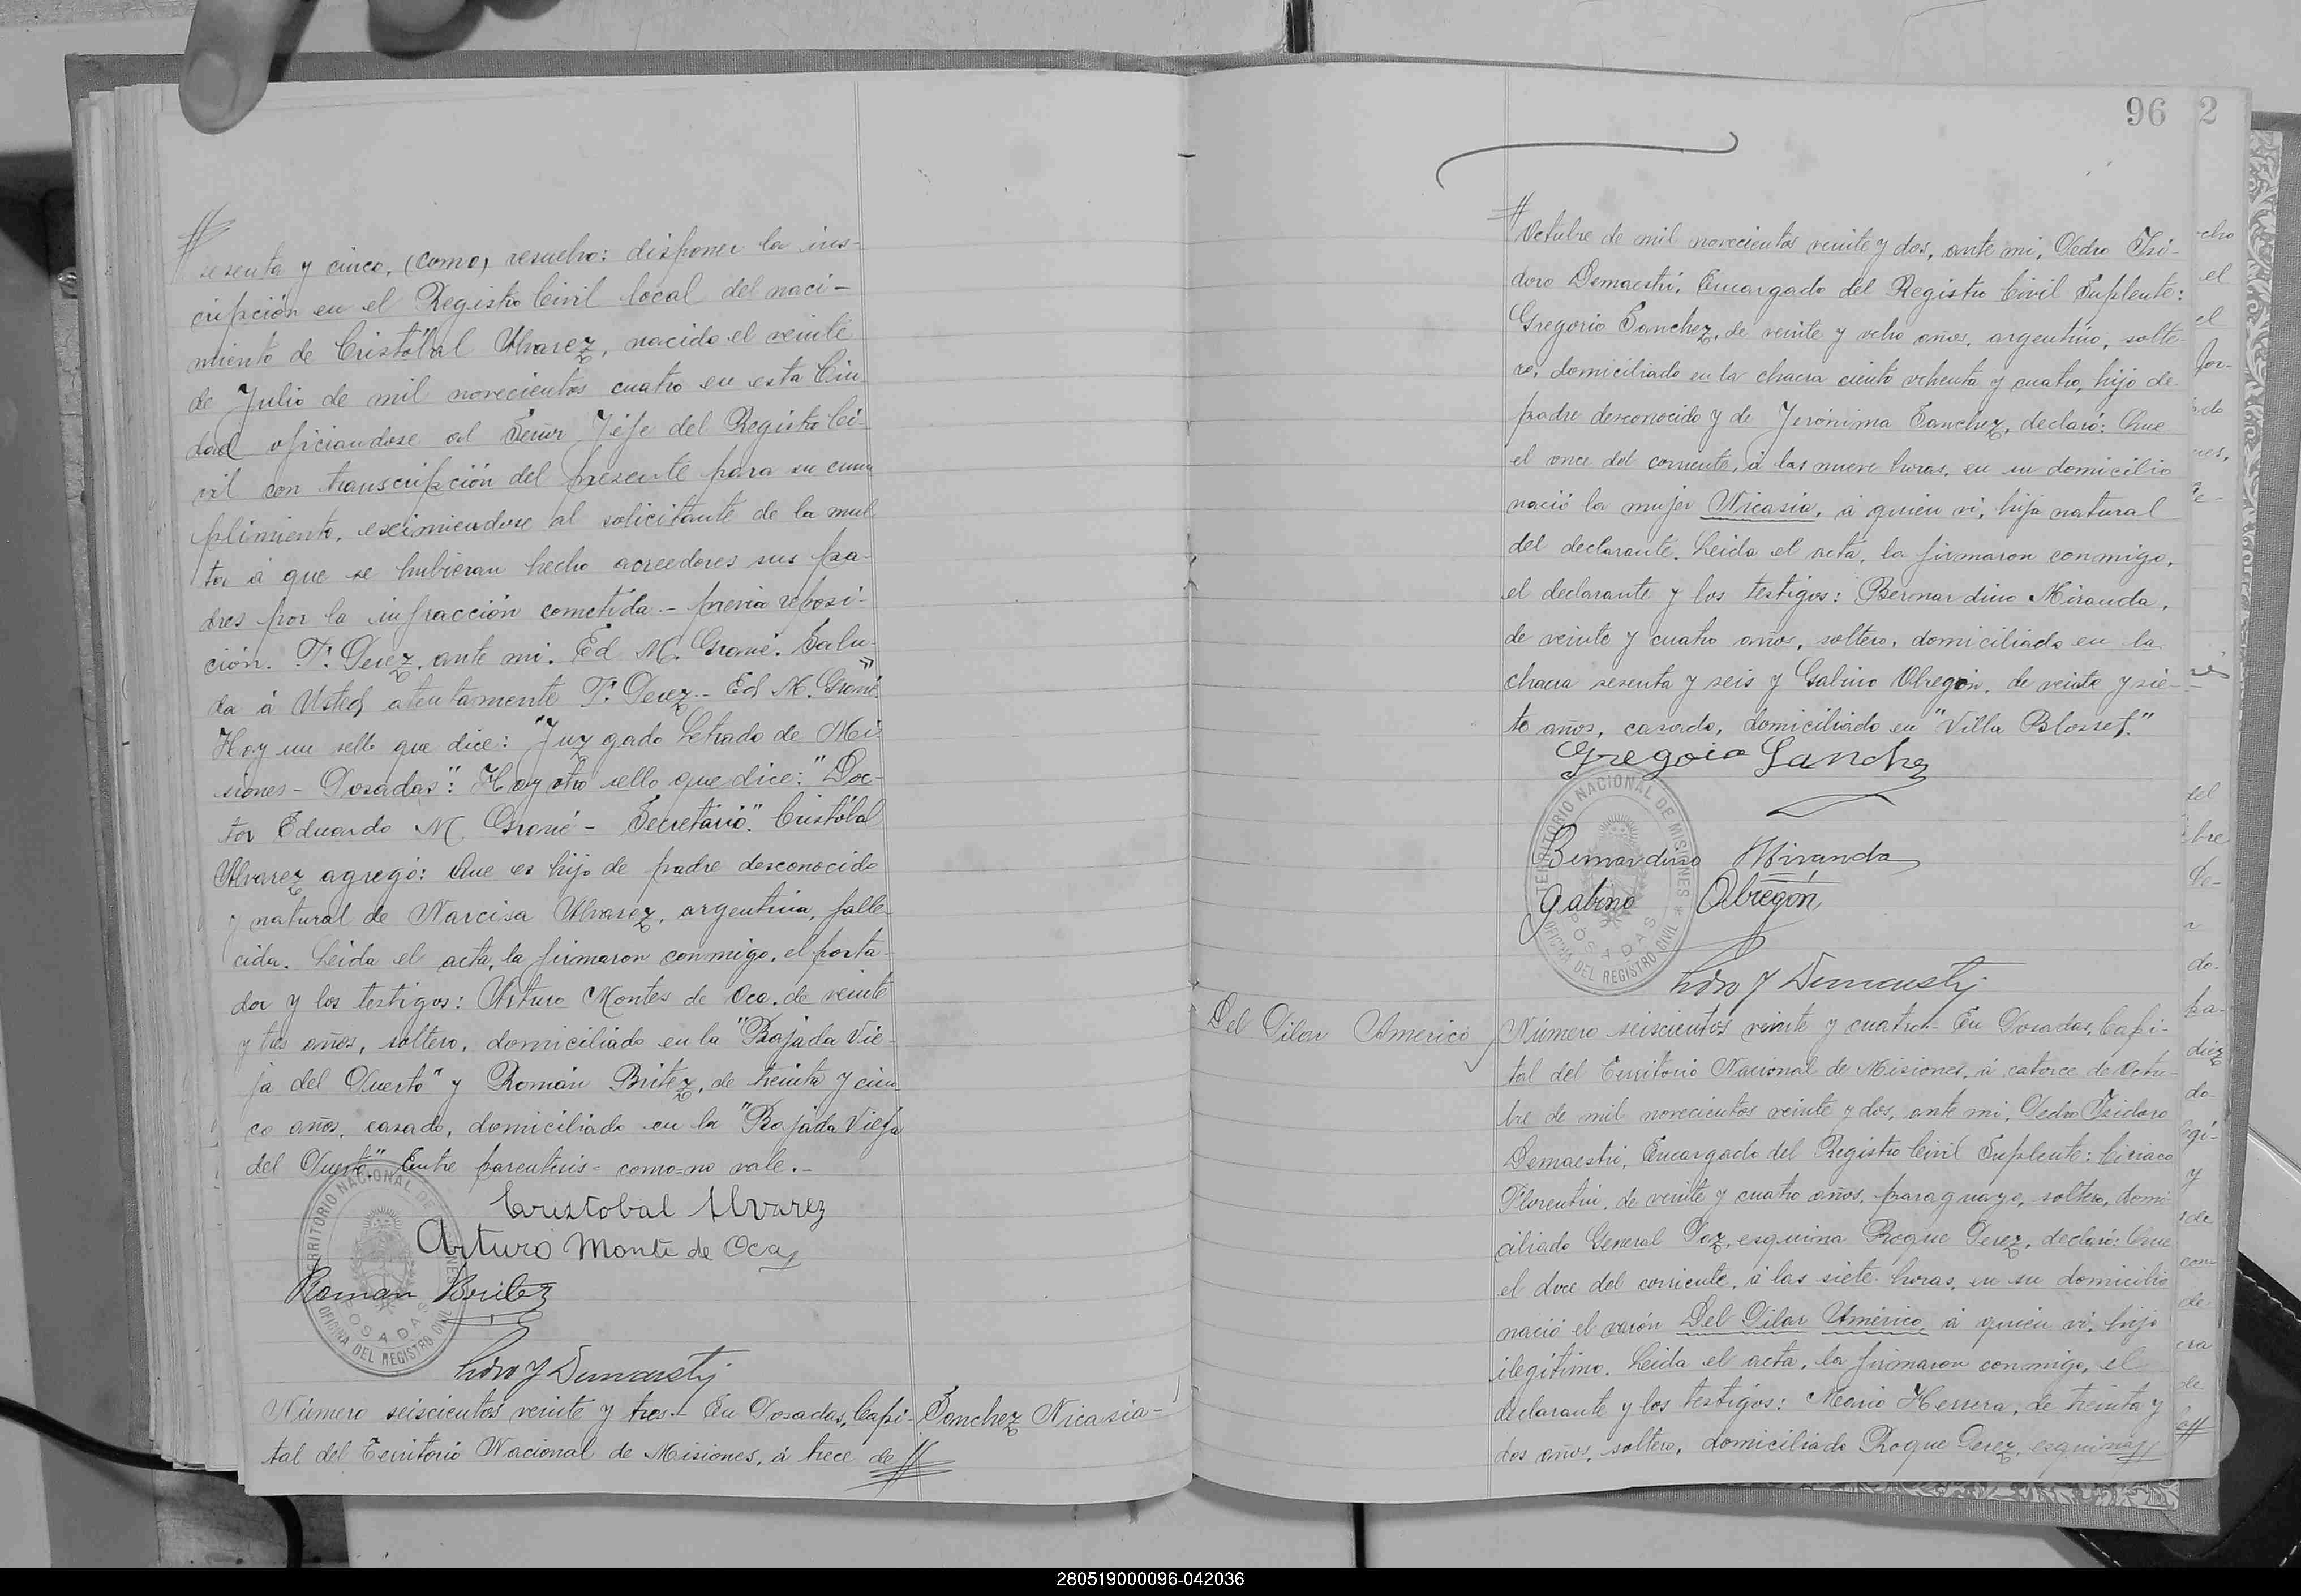 sesenta y cinco, (como) resuelvo: disponer la ins-
cripción en el Registro Civil local del naci-
miento de Cristóbal Alvarez, nacido el veinte
de Julio de mil novecientos cuatro en esta Ciu-
dad oficiandose al Señor Jefe del Registro Ci-
vil con transcripción del presente para su cum
plimiento, eximiendose al solicitante de la mul
ta á que se hubieran hecho acreedores sus pa-
dres por la infracción cometida.- previa reposi-
ción. F. Perez, ante mi. Ed M. Grané. Salu-
da á Usted atentamente F. Perez.- Ed M. Grané"
Hay un sello que dice: "Juzgado Letrado de Mi-
siones - Posadas": Hay otro sello que dice: "Doc-
tor Eduardo M. Grané - Secretario". Cristóbal
Alvarez agregó: Que es hijo de padre desconocido
y natural de Narcisa Alvarez, argentina, falle-
cida. Leida el acta, la firmaron conmigo, el porta-
dor y los testigos: Arturo Montes de Oca, de veinte
y tres años, soltero, domiciliado en la "Bajada Vie-
ja del Puerto" y Román Britez, de treinta y cin-
co años, casado, domiciliado en la "Bajada Vieja
del Puerto" Entre parentesis = como = no vale.-
Cristobal Alvarez
Arturo Monte de Oca
Roman Britez
TERRITORIO NACIONAL DE MISIONES
POSADAS
OFICINA DEL REGISTRO CIVIL
Pedro I Demaestri
Número seiscientos veinte y tres.- En Posadas, Capi-
Sanchez Nicasia-
tal del Territorio Nacional de Misiones, á trece de //
96
2
// Octubre de mil novecientos veinte y dos, ante mi, Pedro Isi-
doro Demaestri, Encargado del Registro Civil Suplente:
Gregorio Sanchez, de veinte y ocho años, argentino, solte-
ro, domiciliado en la chacra ciento ochenta y cuatro, hijo de
padre desconocido y de Jerónima Sanchez, declaró: Que
el once del corriente, á las nueve horas, en su domicilio
nació la mujer Nicasia, á quien vi, hija natural
del declarante. Leida el acta, la firmaron conmigo,
el declarante y los testigos: Bernardino Miranda,
de veinte y cuatro años, soltero, domiciliado en la
chacra sesenta y seis y Gabino Obregón, de veinte y sie-
te años, casado, domiciliado en "Villa Blosset."
Gregoio Sanchez
TERRITORIO NACIONAL DE MISIONES
POSADAS
OFICINA DEL REGISTRO CIVIL
Bernardino Miranda
Gabino Obregón
Pedro I Demaestri
Del Pilar Americo
Número seiscientos veinte y cuatro.- En Posadas, Capi-
tal del Territorio Nacional de Misiones, á catorce de Octu-
bre de mil novecientos veinte y dos, ante mi, Pedro Isidoro
Demaestri, Encargado del Registro Civil Suplente: Ciriaco
Florentin, de veinte y cuatro años, paraguayo, soltero, domi-
ciliado General Paz, esquina Roque Perez, declaró: Que
el doce del corriente, á las siete horas, en su domicilio
nació el varón Del Pilar Américo, á quien ví, hijo
ilegítimo. Leida el acta, la firmaron conmigo, el
declarante y los testigos: Mario Herrera, de treinta y
dos años, soltero, domiciliado Roque Perez, esquina //
280519000096-042036